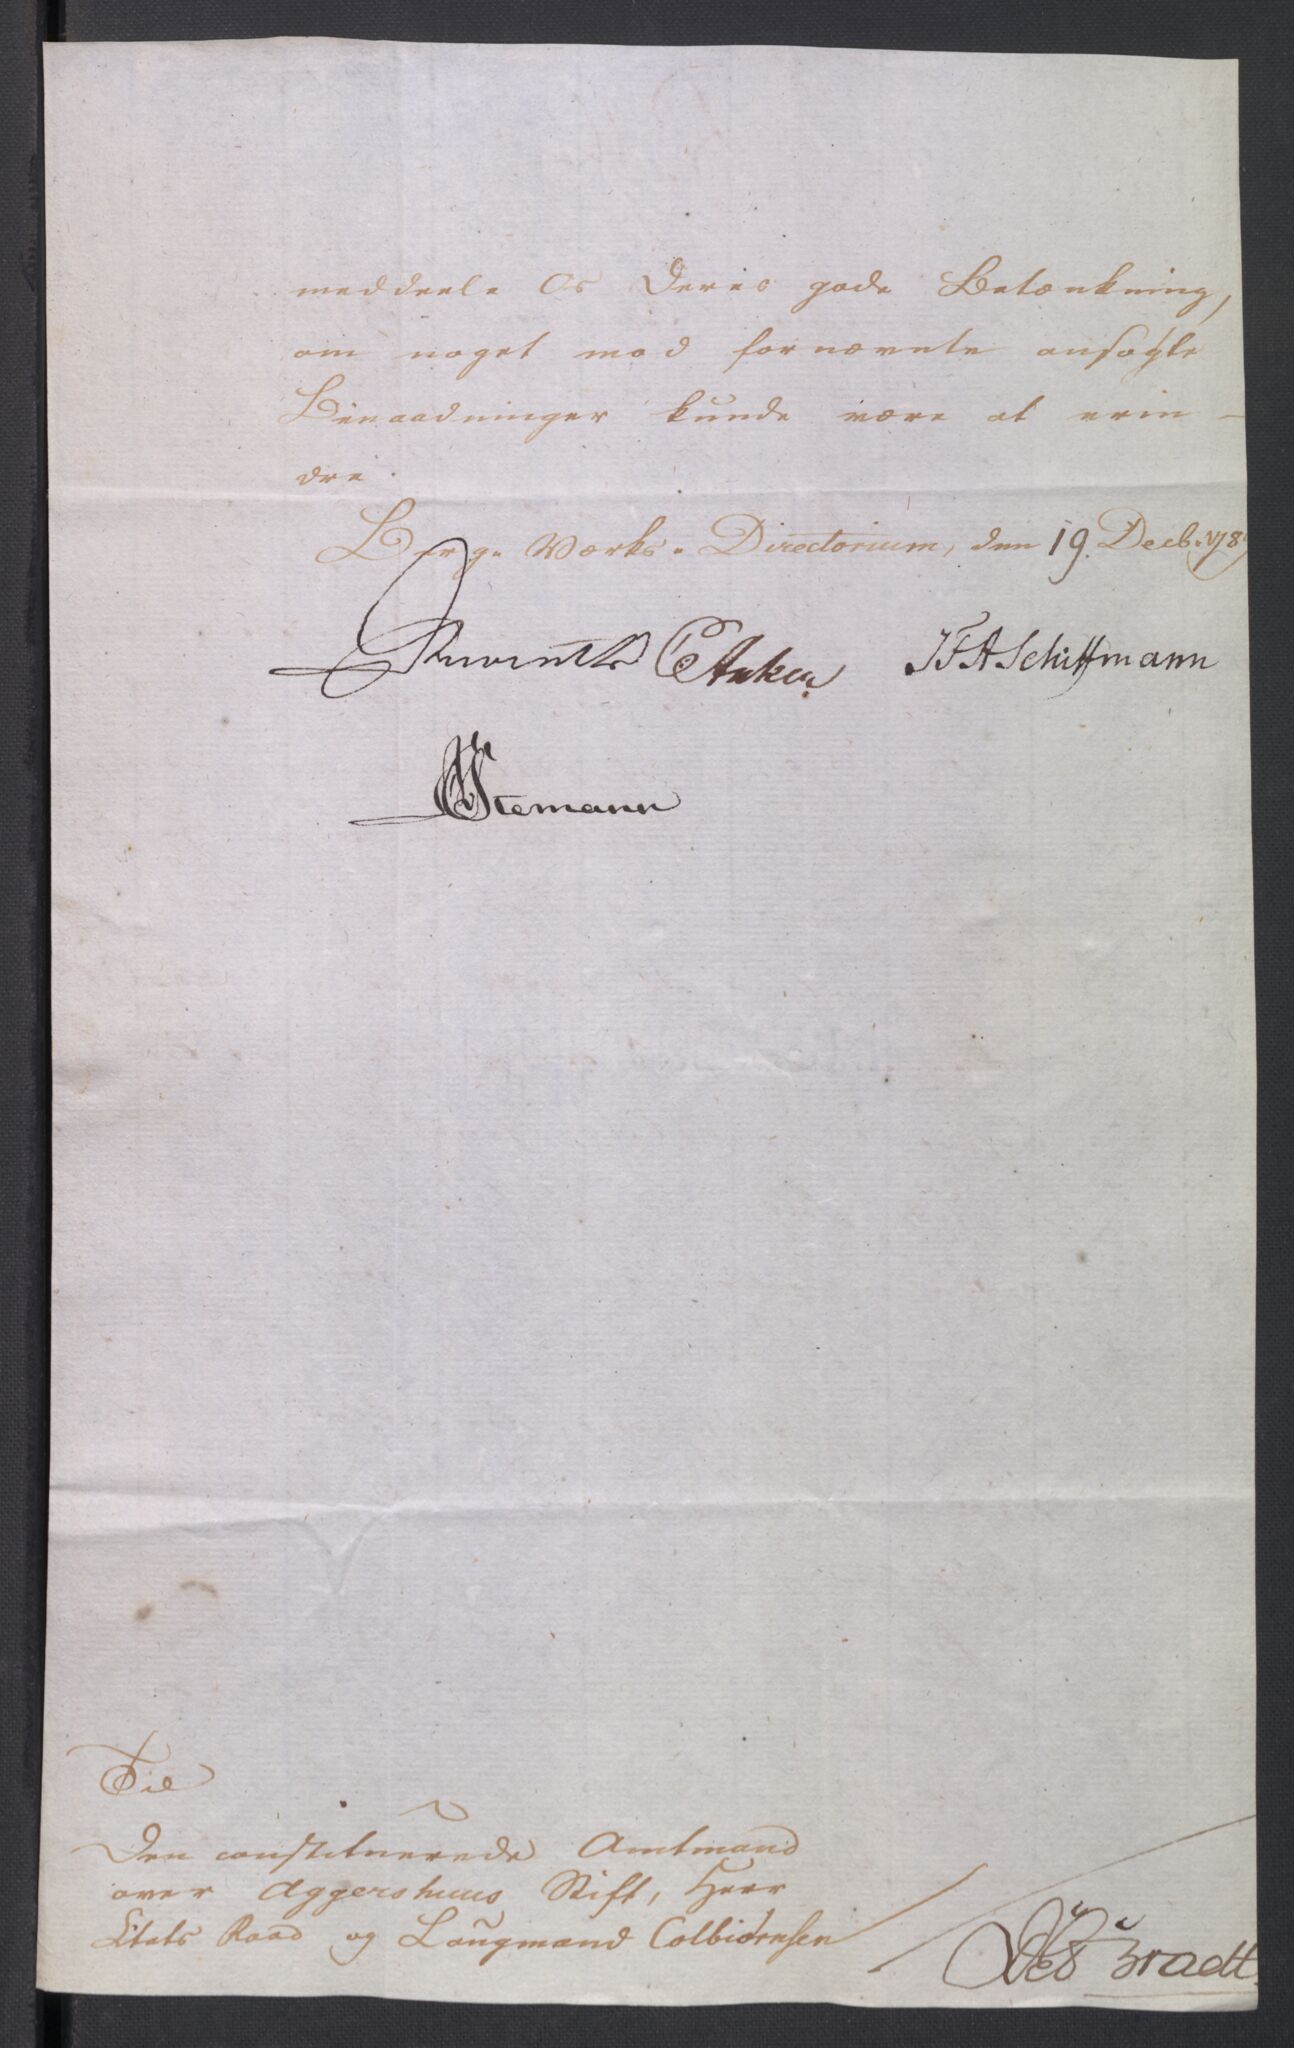 meddeele Os Deres gode Betænkning,
om noget mod fornævnte ansøgte
Benaadninger kunde være at erin-
dre.
Berg-Værks-Directorium, den 19. Decb. 178
CAnker JFASchiffmann
Stemann
Til
Den constituerede Amtmand
over Aggershuus Stift, Herr
Etats Raad og Laugmand Colbiørnsen
Bradt